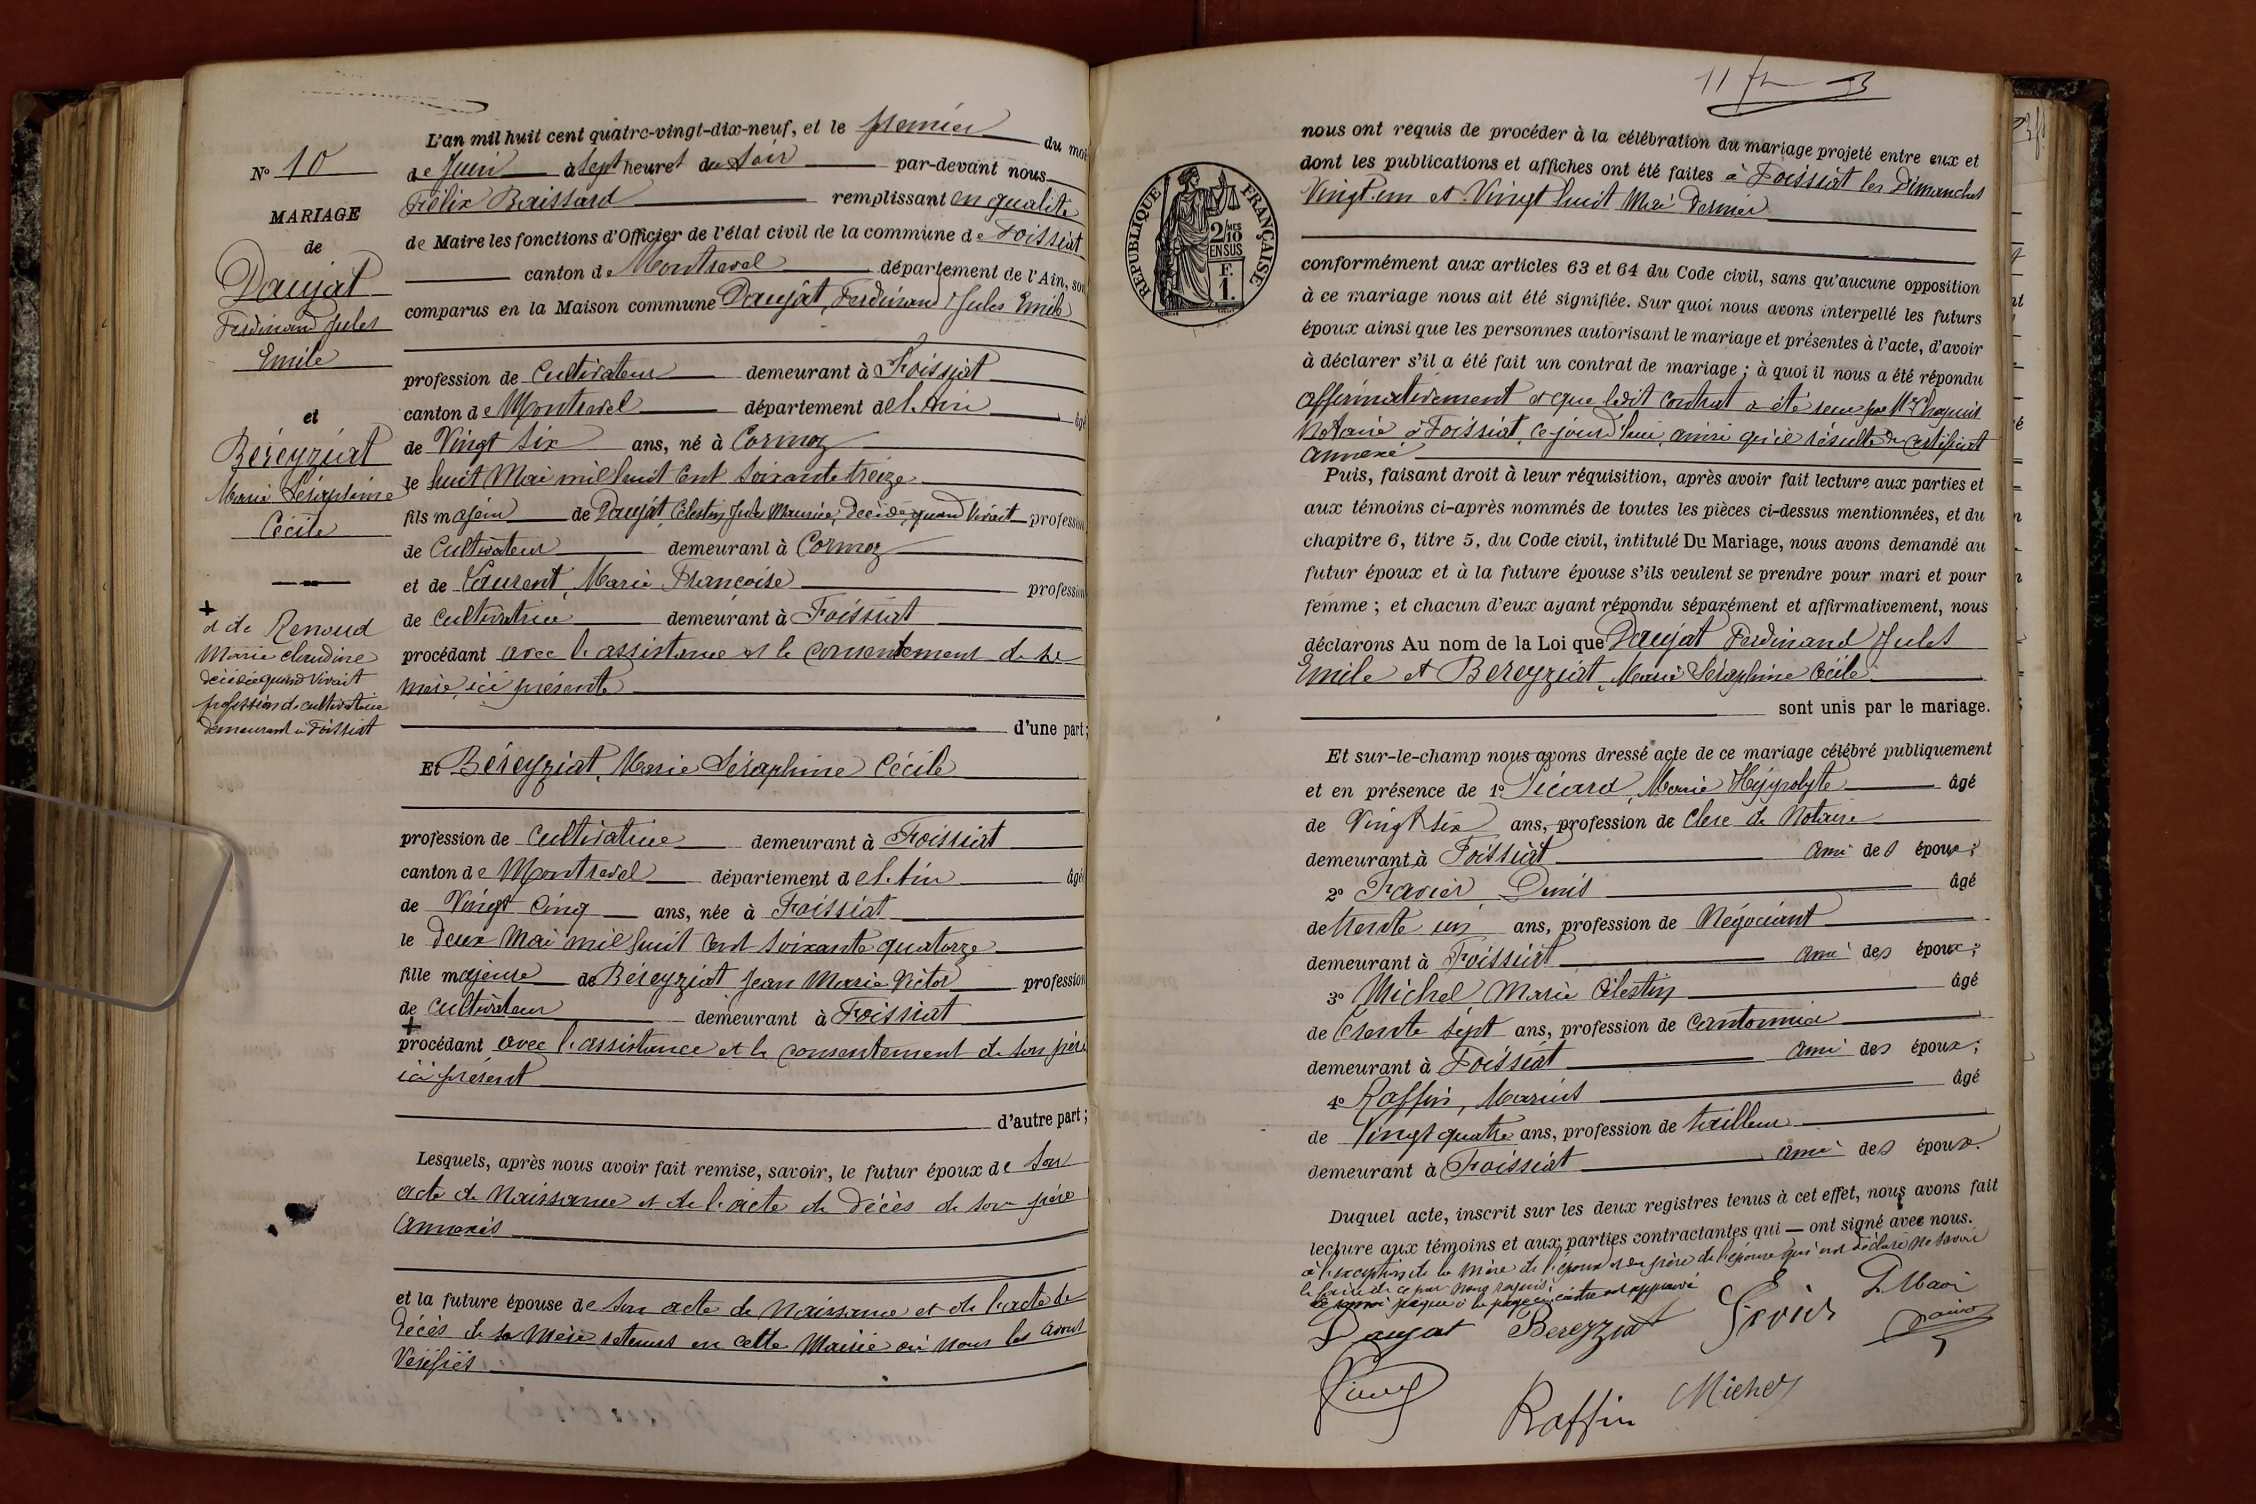 N° 10
MARIAGE
de
Daujat
Ferdinand Jules
Emile
et
Béreyziat
Marie Séraphine
Cécile
+
et de Renoud
Marie Claudine
décédée quand vivait
profession de cultivatrice
demeurant à Foissiat
L'an mil huit cent quatre-vingt-dix-neuf, et le premier du moi
de Juin à sept heures du soir par-devant nous
Félix Baissard remplissant en qualité
de Maire les fonctions d'Officier de l'état civil de la commune de Foissiat
canton de Montrevel département de l'Ain, son
comparus en la Maison commune Daujat, Ferdinand Jules Emile
profession de Cultivateur demeurant à Foissiat
canton de Montrevel département de l'Ain âgé
de Vingt six ans, né à Cormoz
le huit Mai mil huit cent soixante treize
fils majeur de Daujat, Célestin Jules Maurice, décédé, quand vivait profession
de Cultivateur demeurant à Cormoz
et de Laurent, Marie Françoise profession
de Cultivatrice demeurant à Foissiat
procédant avec l'assistance et le consentement de sa
mère ici présente
d'une part;
Et Béreyziat, Marie Séraphine Cécile
profession de Cultivatrice demeurant à Foissiat
canton de Montrevel département de l'Ain âgé
de Vingt Cinq ans, née à Foissiat
le deux Mai mil huit cent soixante quatorze
fille majeure de Béreyziat Jean Marie Victor profession
de Cultivateur demeurant à Foissiat
+
procédant avec l'assistance et le consentement de son père
ici présent
d'autre part;
Lesquels, après nous avoir fait remise, savoir, le futur époux de son
acte de Naissance et de l'acte de décès de son père
annexés
et la future épouse de son acte de Naissance et de l'acte de
décès de sa mère retenus en cette Mairie où nous les avons
vérifiés
RÉPUBLIQUE FRANÇAISE
2/10 MES
EN SUS
F.
1.
nous ont requis de procéder à la célébration du mariage projeté entre eux et
dont les publications et affiches ont été faites à Foissiat les Dimanches
Vingt-un et Vingt huit Mai dernier
conformément aux articles 63 et 64 du Code civil, sans qu'aucune opposition
à ce mariage nous ait été signifiée. Sur quoi nous avons interpellé les futurs
époux ainsi que les personnes autorisant le mariage et présentes à l'acte, d'avoir
à déclarer s'il a été fait un contrat de mariage; à quoi il nous a été répondu
affirmativement et que ledit contrat a été reçu par Me Chapuis
Notaire à Foissiat, ce jourd'hui, ainsi qu'il résulte du certificat
annexé
Puis, faisant droit à leur réquisition, après avoir fait lecture aux parties et
aux témoins ci-après nommés de toutes les pièces ci-dessus mentionnées, et du
chapitre 6, titre 5, du Code civil, intitulé Du Mariage, nous avons demandé au
futur époux et à la future épouse s'ils veulent se prendre pour mari et pour
femme; et chacun d'eux ayant répondu séparément et affirmativement, nous
déclarons Au nom de la Loi que Daujat Ferdinand Jules
Emile et Bereyziat, Marie Séraphine Cécile
sont unis par le mariage.
Et sur-le-champ nous avons dressé acte de ce mariage célébré publiquement
et en présence de 1° Sicard, Marie Hyppolyte âgé
de Vingt six ans, profession de Clerc de Notaire
demeurant à Foissiat ami des époux;
2° Favier, Denis âgé
de trente un ans, profession de Négociant
demeurant à Foissiat ami des époux;
3° Michel Marie Célestin âgé
de trente sept ans, profession de Cantonnier
demeurant à Foissiat ami des époux;
4° Raffin, Marius âgé
de Vingt quatre ans, profession de tailleur
demeurant à Foissiat ami des époux.
Duquel acte, inscrit sur les deux registres tenus à cet effet, nous avons fait
lecture aux témoins et aux parties contractantes qui — ont signé avec nous.
à l'exception de la mère de l'époux et du père de l'épouse qui ont déclaré ne savoir
le faire de ce par nous requis.
Daujat Bereyziat
Raffin Michel